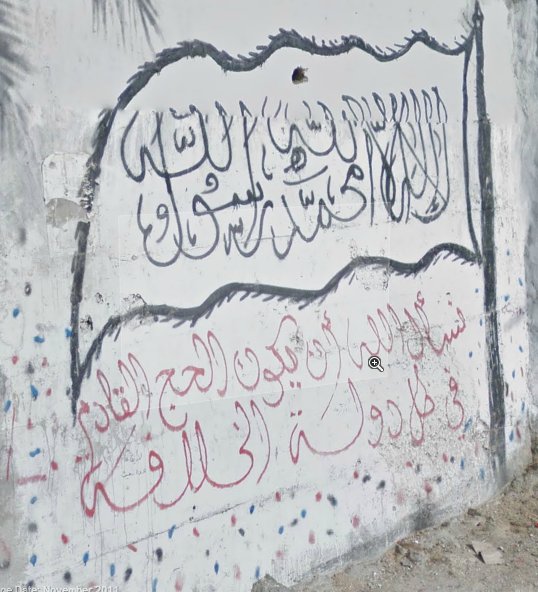 لا إله إلا الله محمد رسول الله
نسأل الله أن يكون الحج القادم
في ظل دولة الخلافة
ne Date: November 2011